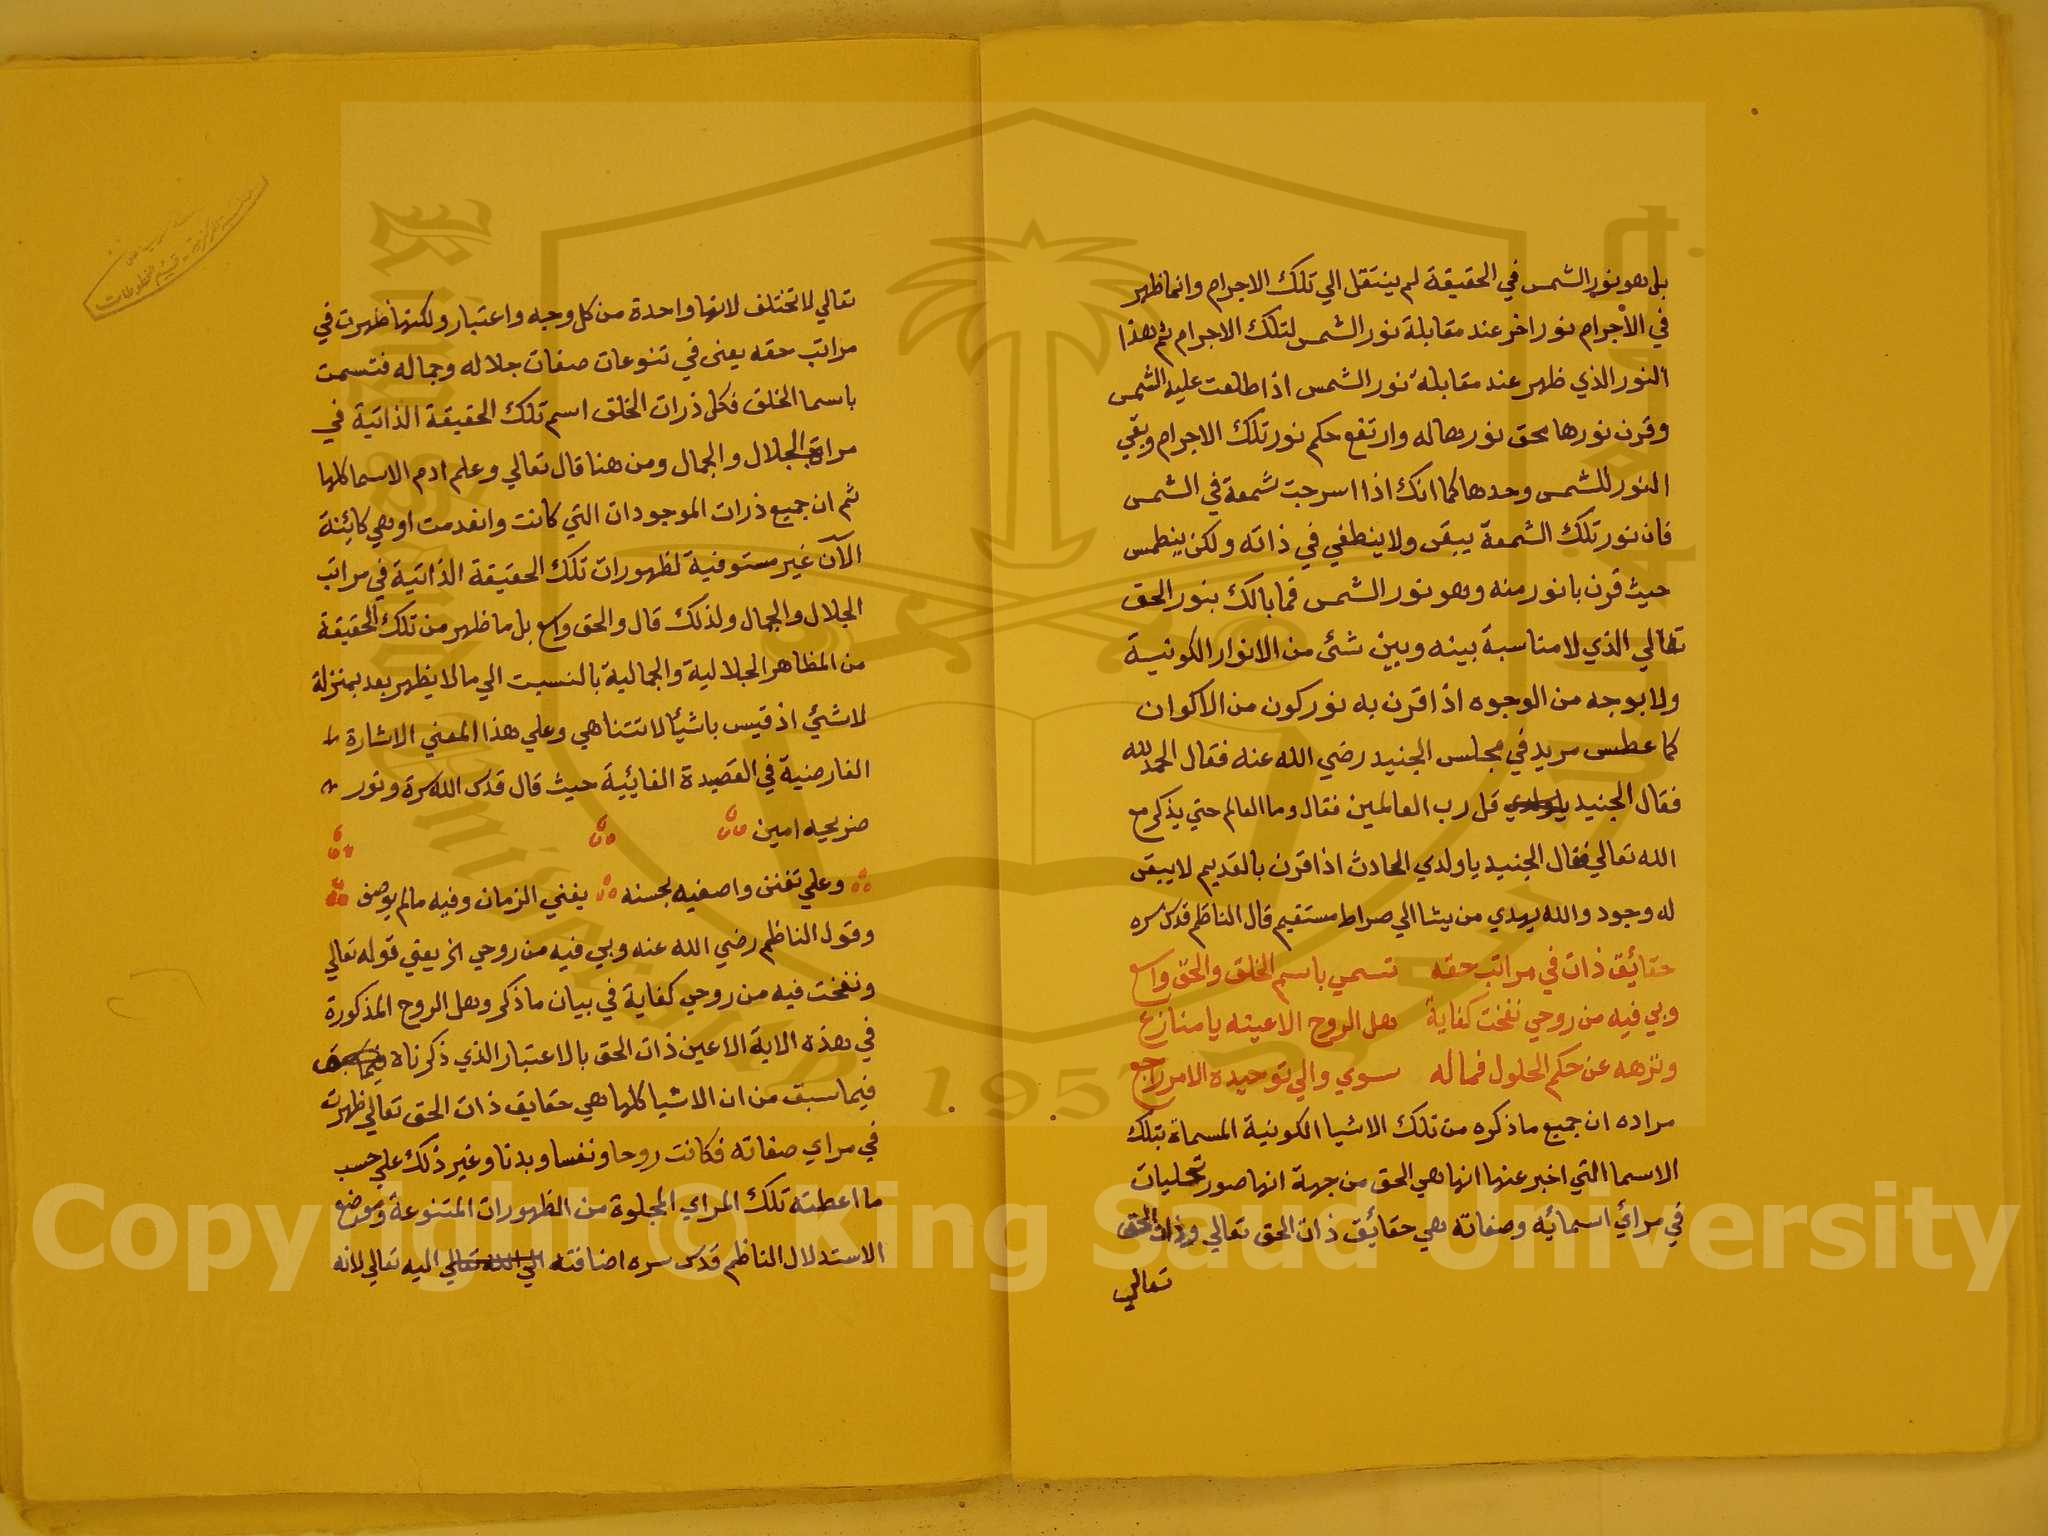 بل هو نور الشمس في الحقيقة لم ينتقل الي تلك الاجرام وانما ظهر
في الأجرام نور اخر عند مقابلة نور الشمس لتلك الاجرام ثم هذا
النور الذي ظهر عند مقابلة نور الشمس اذا طلعت عليه الشمس
وقرن نورها محق نورها له وارتفع حكم نور تلك الاجرام وبقي
النور للشمس وحدها كما انك اذا اسرجت شمعة في الشمس
فان نور تلك الشمعة يبقى ولا ينطفي في ذاته ولكن ينطمس
حيث قرن بانور منه وهو نور الشمس فما بالك بنور الحق
تعالي الذي لا مناسبة بينه وبين شئ من الانوار الكونية
ولا بوجه من الوجوه اذا قرن به نور كون من الاكوان
كما عطس مريد في مجلس الجنيد رضي الله عنه فقال الحمد لله
فقال الجنيد قل رب العالمين فقال وما العالم حتي يذكر مع
الله تعالي فقال الجنيد يا ولدي الحادث اذا قرن بالقديم لا يبقى
له وجود والله يهدي من يشا الي صراط مستقيم قال الناظم قدس سره
حقائق ذات في مراتب حقه تسمي باسم الخلق والحق واسع
وبي فيه من روحي نفخت كفاية هل الروح الا عينه يا منازع
ونزهه عن حكم الحلول فما له سوي والي توحيده الامر راجع
مراده ان جميع ما ذكره من تلك الاشيا الكونية المسماة بتلك
الاسما التي اخبر عنها انها هي الحق من جهة انها صور تجليات
في مرائ اسمائه وصفاته هي حقائق ذات الحق تعالي وذات الحق
تعالي
تعالي لا تختلف لانها واحدة من كل وجه واعتبار ولكنها ظهرت في
مراتب حقه يعني في تنوعات صفات جلاله وجماله فتسمت
باسما الخلق فكل ذرات الخلق اسم تلك الحقيقة الذاتية في
مراة الجلال والجمال ومن هنا قال تعالي وعلم ادم الاسما كلها
ثم ان جميع ذرات الموجودات التي كانت وانعدمت او هي كائنة
الآن غير مستوفية لظهورات تلك الحقيقة الذاتية في مراتب
الجلال والجمال ولذلك قال والحق واسع بل ما ظهر من تلك الحقيقة
من المظاهر الجلالية والجمالية بالنسبت الي ما لا يظهر بعد بمنزلة
لا شئ اذ قيس باشيأ لا تتناهي وعلي هذا المعني الاشارة
الفارضية في القصيدة الفائية حيث قال قدس الله سره ونور
ضريحيه امين
وعلي تفنن واصفيه بحسنه يفني الزمان وفيه ما لم يوصف
وقول الناظم رضي الله عنه وبي فيه من روحي الخ يعني قوله تعالي
ونفخت فيه من روحي كفاية في بيان ما ذكر وهل الروح المذكورة
في هذه الاية الا عين ذات الحق بالاعتبار الذي ذكرناه
فيما سبق من ان الاشيا كلها هي حقايق ذات الحق تعالي ظهرت
في مراي صفاته فكانت روحا ونفسا وبدنا وغير ذلك علي حسب
ما اعطته تلك المراي المجلوة من الظهورات المتنوعة وموضع
الاستدلال الناظم قدس سره اضافته الي الله تعالي اليه تعالي لانه
Copyright © King Saud University
King Saud University
1957